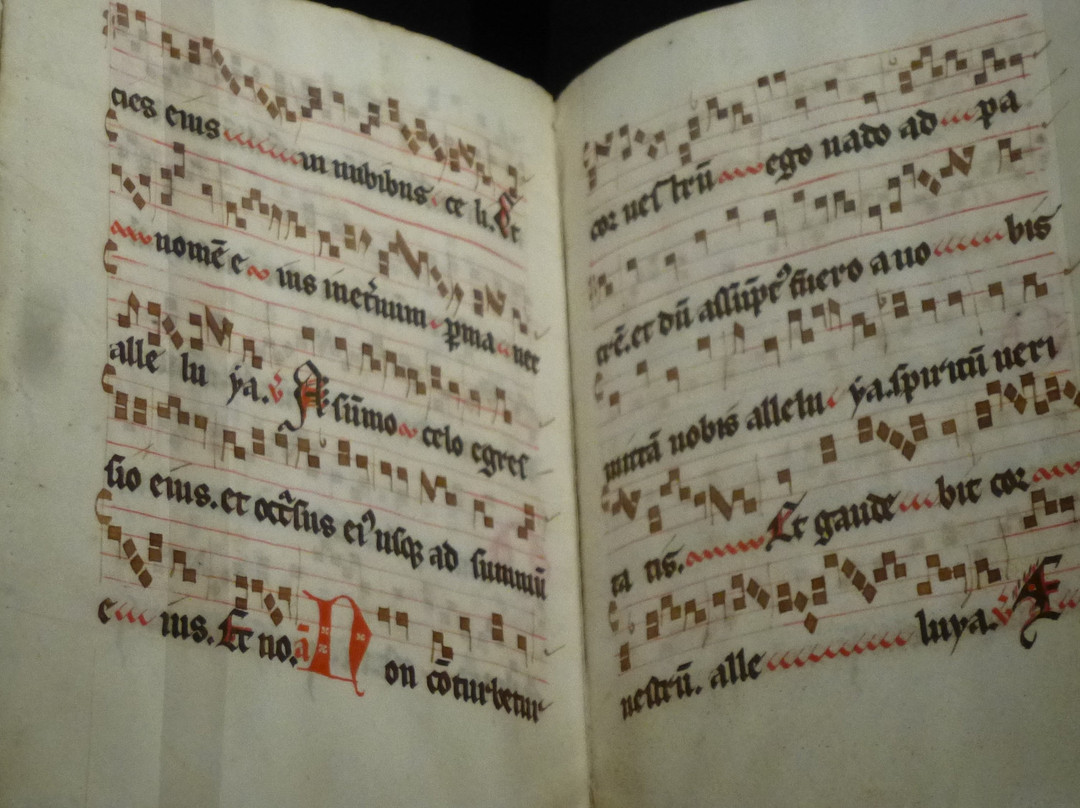 cies eius in nubibus ce li. Et
nomē e ius ineternum pma net
alle lu ya. A sūmo celo egres
sio eius. et occͬsus ei⁹ usqꝫ ad summū
e ius. Et no. a Non cōturbetur
cor uestrū ego uado ad pa
trē. et dū assūpt⁹ fuero a uo bis
mittā uobis alleluya. spiritū ueri
ta tis. Et gaude bit cor
uestrū. alle luya. v A